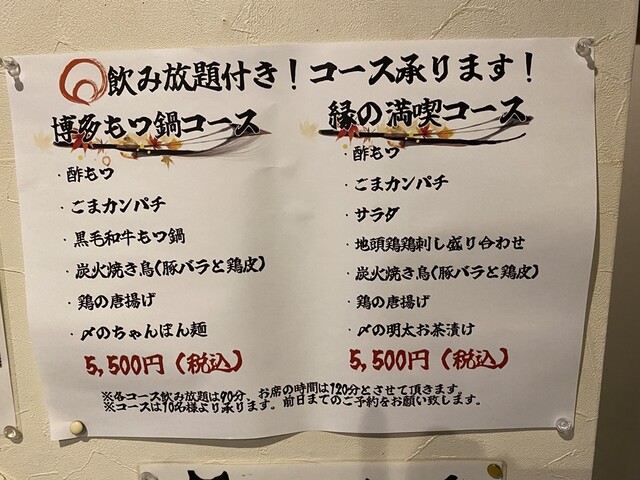 飲み放題付き!コース承ります!
博多もツ鍋コース
・酢もツ
・ごまカンパチ
・黒毛和牛もツ鍋
・炭火焼き鳥(豚バラと鶏皮)
・鶏の唐揚げ
・〆のちゃんぽん麺
5,500円(税込)
縁の満喫コース
・酢もツ
・ごまカンパチ
・サラダ
・地頭鶏鶏刺し盛り合わせ
・炭火焼き鳥(豚バラと鶏皮)
・鶏の唐揚げ
・〆の明太お茶漬け
5,500円(税込)
※各コース飲み放題は90分、お席の時間は120分とさせて頂きます。
※コースは10名様より承ります。前日までのご予約をお願い致します。